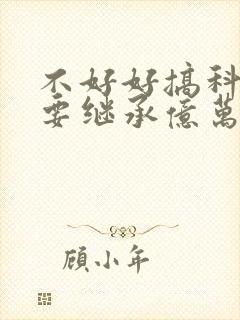 不好好搞科
要继承億萬
顾小年